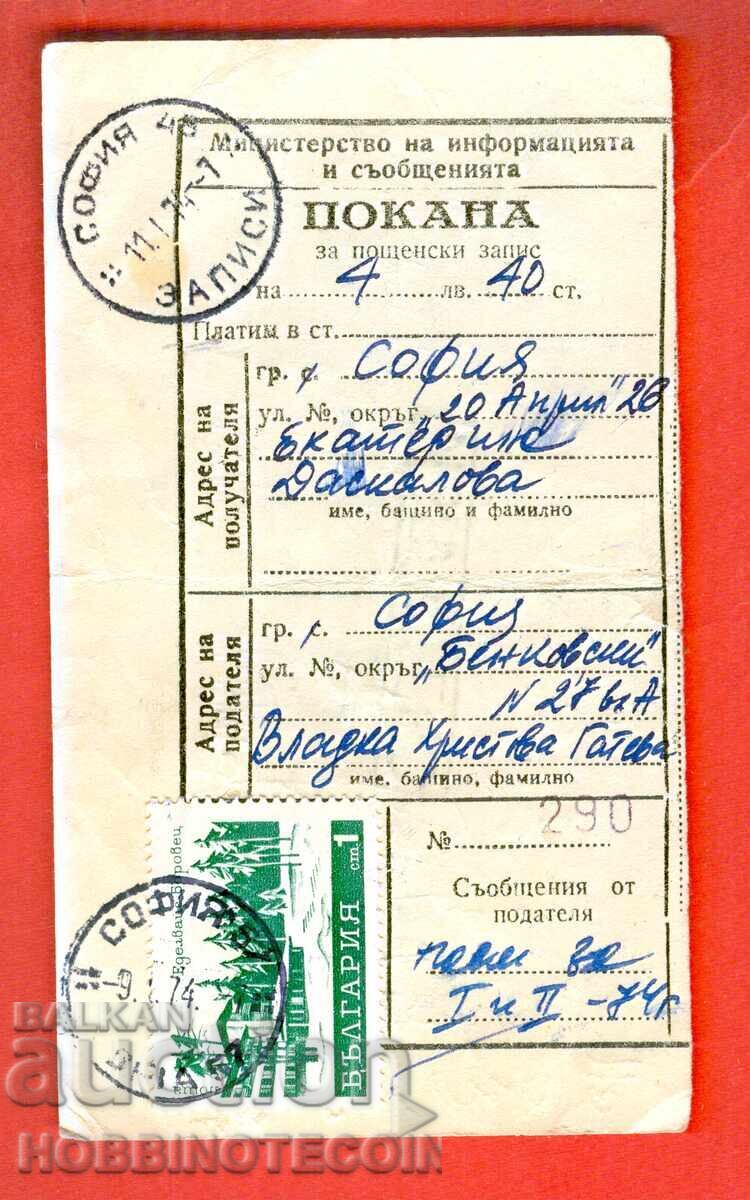 СОФИЯ 45
11.I.7
ЗАПИСИ
Министерство на информацията
и съобщенията
ПОКАНА
за пощенски запис
на 4 лв. 40 ст.
Платим в ст.
Адрес на
получателя
гр. с. София
ул. №, окръг 20 Април" 26
Екатерина
Даскалова
име, бащино и фамилно
Адрес на
подателя
гр. с. София
ул. №, окръг „Бенковски"
N 27 вх А
Владка Христова Гатева
име, бащино, фамилно
290
№
Съобщения от
подателя
наем за
I и II - 74 г
Еделвайс-Боровец
1 ст
БЪЛГАРИЯ
СОФИЯ
-9. 74
BALKAN
auction
HOBBINOTECOIN